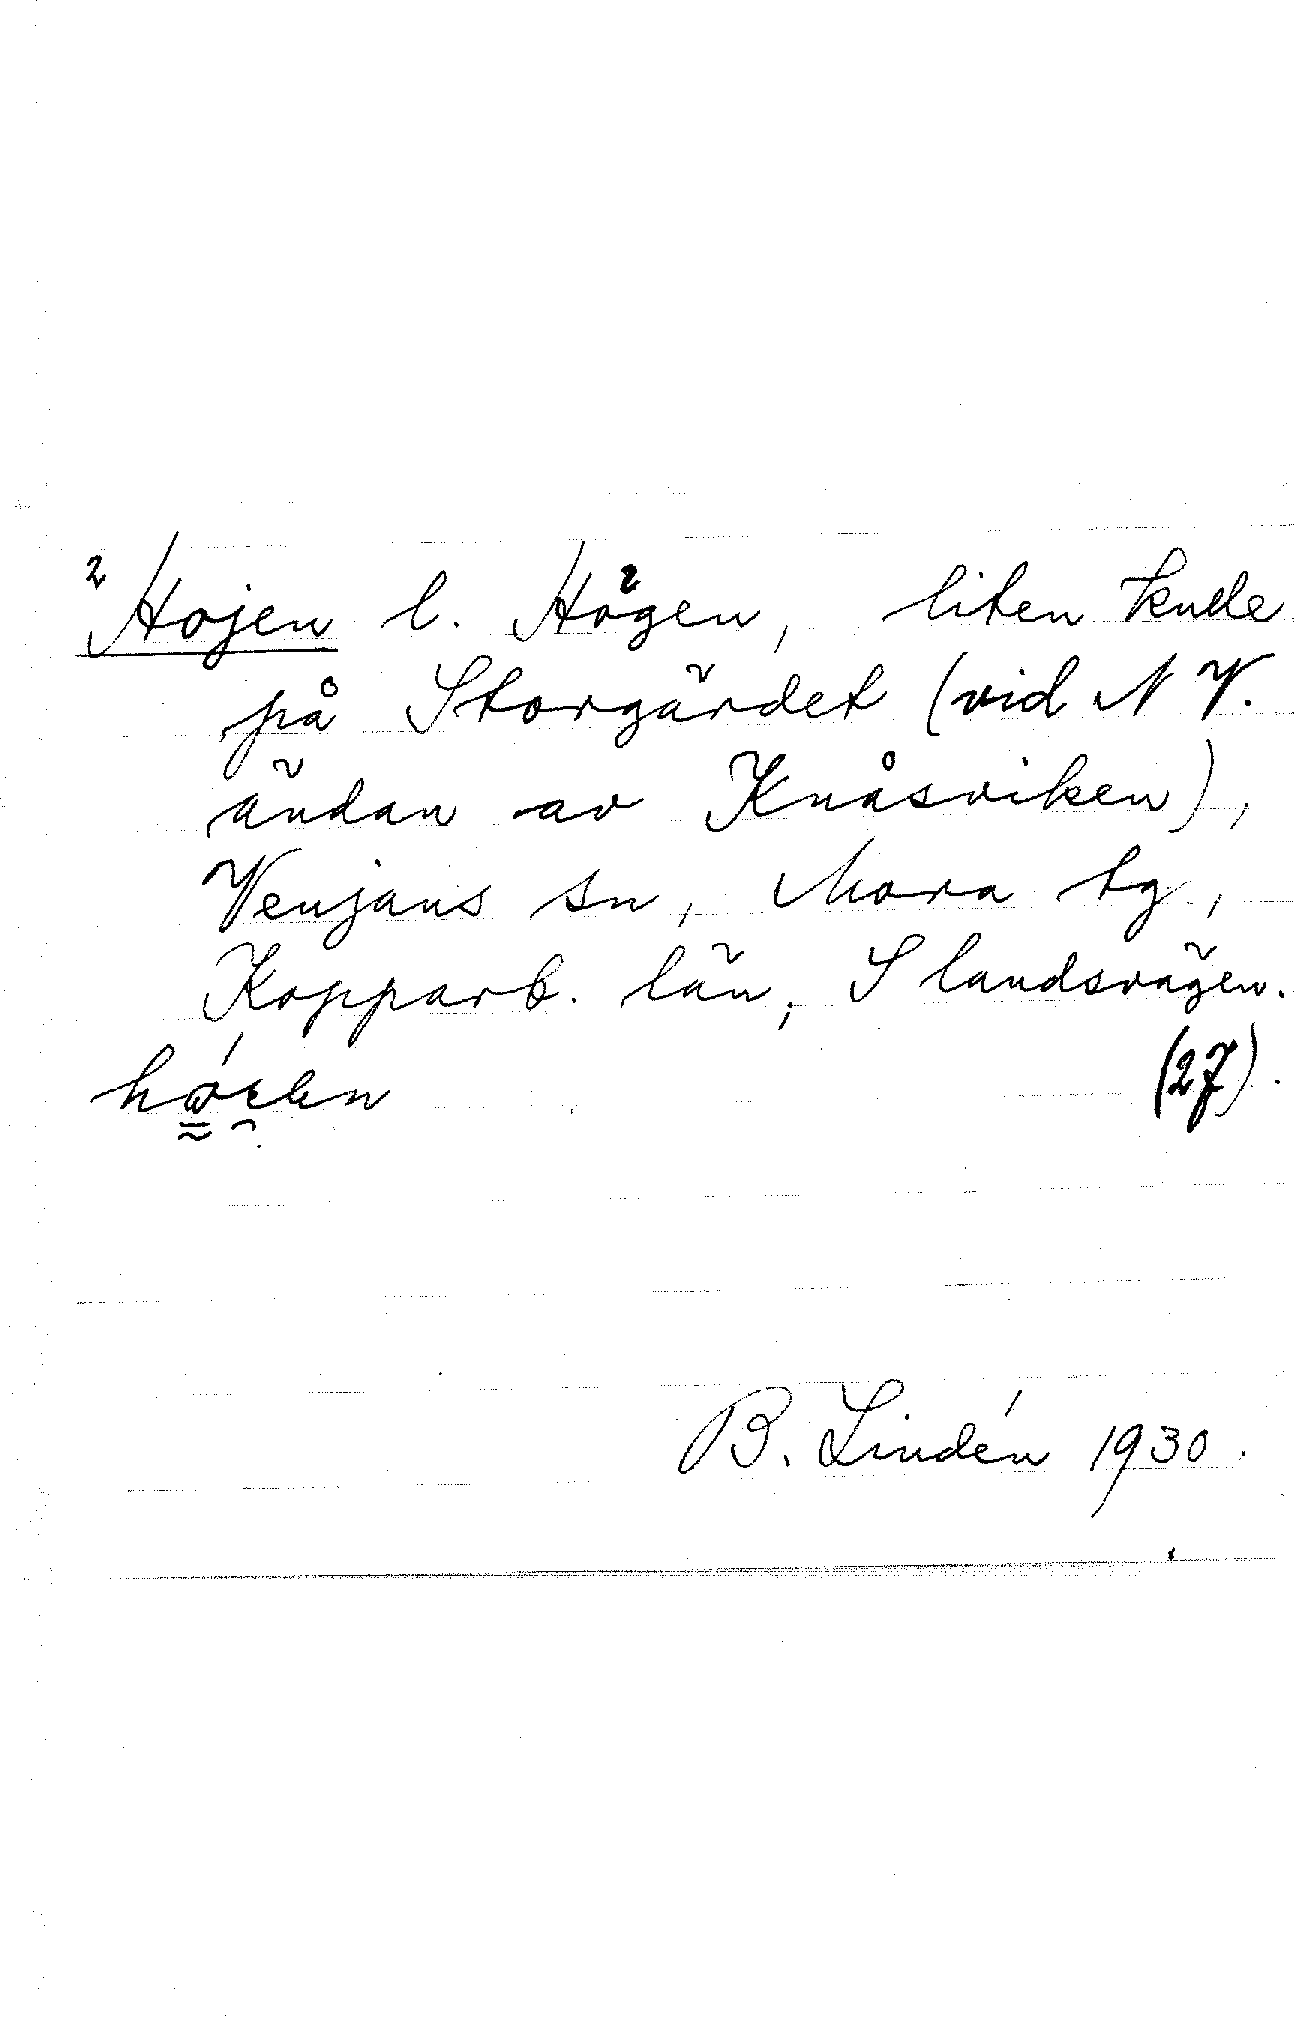 ² Hojen l. Högen, liten kulle
på Storgärdet (vid N V.
ändan av Knåsviken),
Venjans sn, Mora tg,
Kopparb. län, S landsvägen.
(27).
B. Lindén 1930.